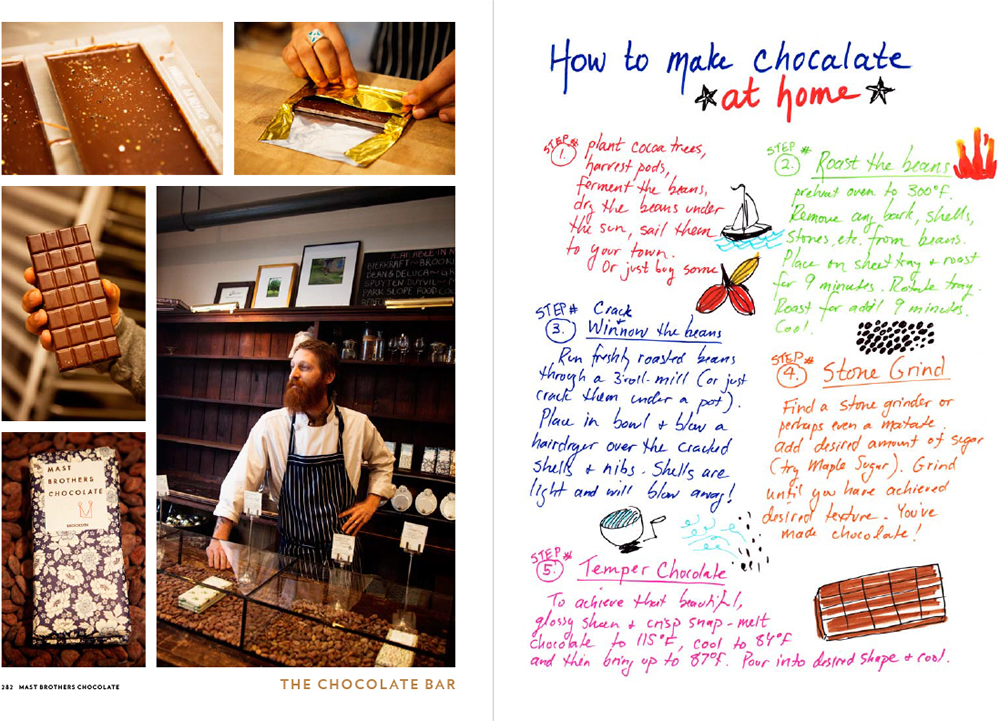 MAST
BROTHERS
CHOCOLATE
BROOKLYN
BIERKRAFT - BROOK
DEAN & DELUCA - G
SPUYTEN DUYVIL -
PARK SLOPE FOOD CO
282 MAST BROTHERS CHOCOLATE
THE CHOCOLATE BAR
How to make chocalate
at home
STEP #
1.
plant cocoa trees,
harvest pods,
ferment the beans,
dry the beans under
the sun, sail them
to your town.
Or just buy some
STEP #
2.
Roast the beans
preheat oven to 300°F.
Remove any bark, shells,
stones, etc. from beans.
Place on sheet tray + roast
for 9 minutes. Rotate tray.
Roast for addl 9 minutes.
Cool.
STEP #
3.
Crack +
Winnow the beans
Run freshly roasted beans
through a 3-roll-mill (or just
crack them under a pot).
Place in bowl + blow a
hairdryer over the cracked
shells + nibs. Shells are
light and will blow away!
STEP #
4.
Stone Grind
Find a stone grinder or
perhaps even a matate.
add desired amount of sugar
(try Maple Sugar). Grind
until you have achieved
desired texture. You've
made chocolate!
STEP #
5.
Temper Chocolate
To achieve that beautiful,
glossy sheen + crisp snap - melt
chocolate to 115°F, cool to 84°F
and then bring up to 87°F. Pour into desired shape + cool.